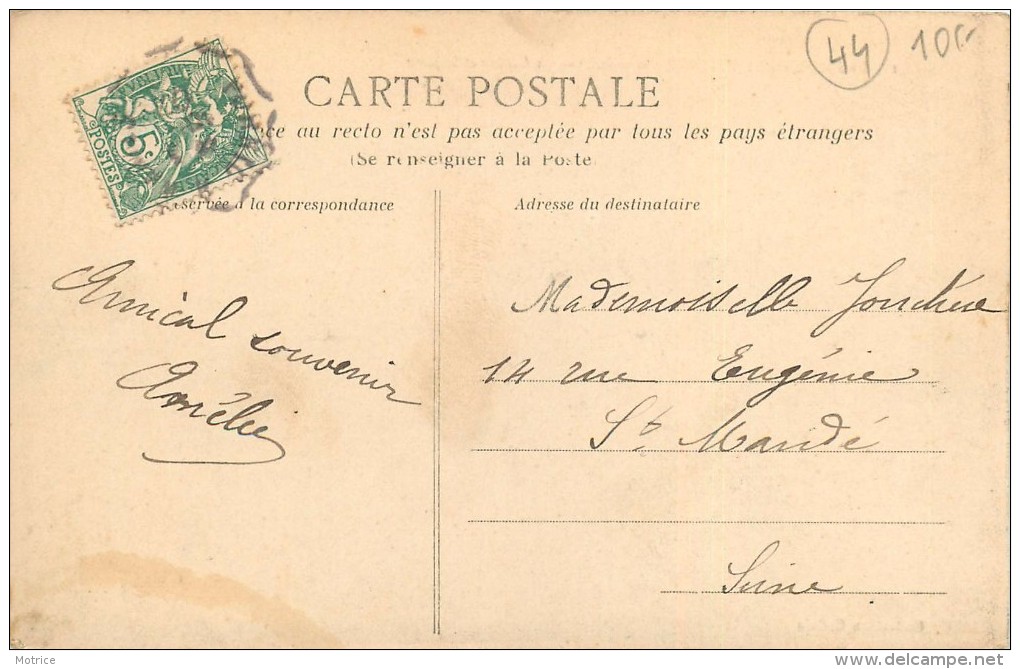 44 10
CARTE POSTALE
au recto n'est pas acceptée par tous les pays étrangers
(Se renseigner à la Poste
5c
POSTES
à la correspondance
Adresse du destinataire
Amical souvenir
Amélie
Mademoiselle
14 rue Eugénie
St Mandé
Seine
Motrice
delcampe.net